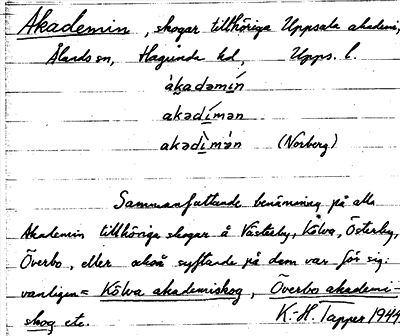 Akademin, skogar tillhöriga Uppsala akademi,
Ålands sn, Hagunda hd, Upps. l.
àkadəmín
akədímən
akədìmən (Norberg)
Sammanfattande benämning på alla
Akademin tillhöriga skogar å Västerby, Kölva, Österby,
Överbo, eller också syftande på dem var för sig.
vanligen = Kölva akademiskog, Överbo akademi-
skog etc. K.-H. Tapper 1944